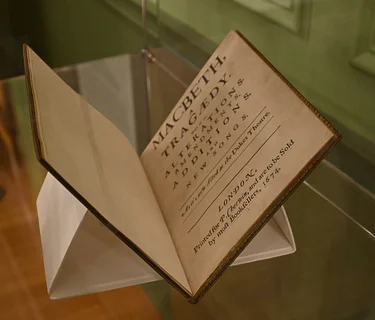 MACBETH,
A
TRAGÆDY.
With all the
ALTERATIONS,
AMENDMENTS,
ADDITIONS,
AND
NEW SONGS.
As it's now Acted at the Dukes Theatre.
LONDON,
Printed for P. Chetwin, and are to be Sold
by most Booksellers, 1674.